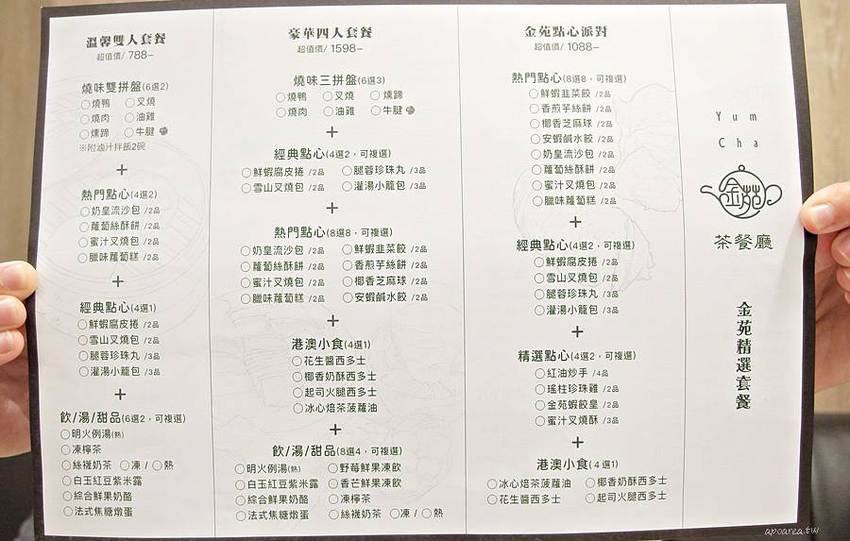 溫馨雙人套餐
超值價/ 788-
燒味雙拼盤(6選2)
○燒鴨 ○叉燒
○燒肉 ○油雞
○燻蹄 ○牛腱
※附滷汁拌飯2碗
+
熱門點心(4選2)
○奶皇流沙包 /2品
○蘿蔔絲酥餅 /2品
○蜜汁叉燒包 /2品
○臘味蘿蔔糕 /2品
+
經典點心(4選1)
○鮮蝦腐皮捲 /2品
○雪山叉燒包 /2品
○腿蓉珍珠丸 /3品
○灌湯小籠包 /3品
+
飲/湯/甜品(6選2,可複選)
○明火例湯(熱)
○凍檸茶
○絲襪奶茶 ○凍 / ○熱
○白玉紅豆紫米露
○綜合鮮果奶酪
○法式焦糖燉蛋
豪華四人套餐
超值價/ 1598-
燒味三拼盤(6選3)
○燒鴨 ○叉燒 ○燻蹄
○燒肉 ○油雞 ○牛腱
+
經典點心(4選2,可複選)
○鮮蝦腐皮捲 /2品 ○腿蓉珍珠丸 /3品
○雪山叉燒包 /2品 ○灌湯小籠包 /3品
+
熱門點心(8選8,可複選)
○奶皇流沙包 /2品 ○鮮蝦韭菜餃 /2品
○蘿蔔絲酥餅 /2品 ○香煎芋絲餅 /2品
○蜜汁叉燒包 /2品 ○椰香芝麻球 /2品
○臘味蘿蔔糕 /2品 ○安蝦鹹水餃 /2品
+
港澳小食(4選1)
○花生醬西多士
○椰香奶酥西多士
○起司火腿西多士
○冰心焙茶菠蘿油
+
飲/湯/甜品(8選4,可複選)
○明火例湯(熱) ○野莓鮮果凍飲
○白玉紅豆紫米露 ○香芒鮮果凍飲
○綜合鮮果奶酪 ○凍檸茶
○法式焦糖燉蛋 ○絲襪奶茶 ○凍 / ○熱
金苑點心派對
超值價/ 1088-
熱門點心(8選8,可複選)
○鮮蝦韭菜餃 /2品
○香煎芋絲餅 /2品
○椰香芝麻球 /2品
○安蝦鹹水餃 /2品
○奶皇流沙包 /2品
○蘿蔔絲酥餅 /2品
○蜜汁叉燒包 /2品
○臘味蘿蔔糕 /2品
+
經典點心(4選2,可複選)
○鮮蝦腐皮捲 /2品
○雪山叉燒包 /2品
○腿蓉珍珠丸 /3品
○灌湯小籠包 /3品
+
精選點心(4選2,可複選)
○紅油炒手 /4品
○瑤柱珍珠雞 /2品
○金苑蝦餃皇 /2品
○蜜汁叉燒酥 /3品
+
港澳小食(4選1)
○冰心焙茶菠蘿油 ○椰香奶酥西多士
○花生醬西多士 ○起司火腿西多士
Yum
Cha
金苑
茶餐廳
金苑精選套餐
apoarea.tw